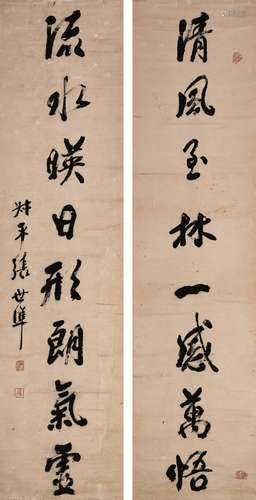 清風至林一感萬悟
流水暎日形朗氣靈
叔平張世準